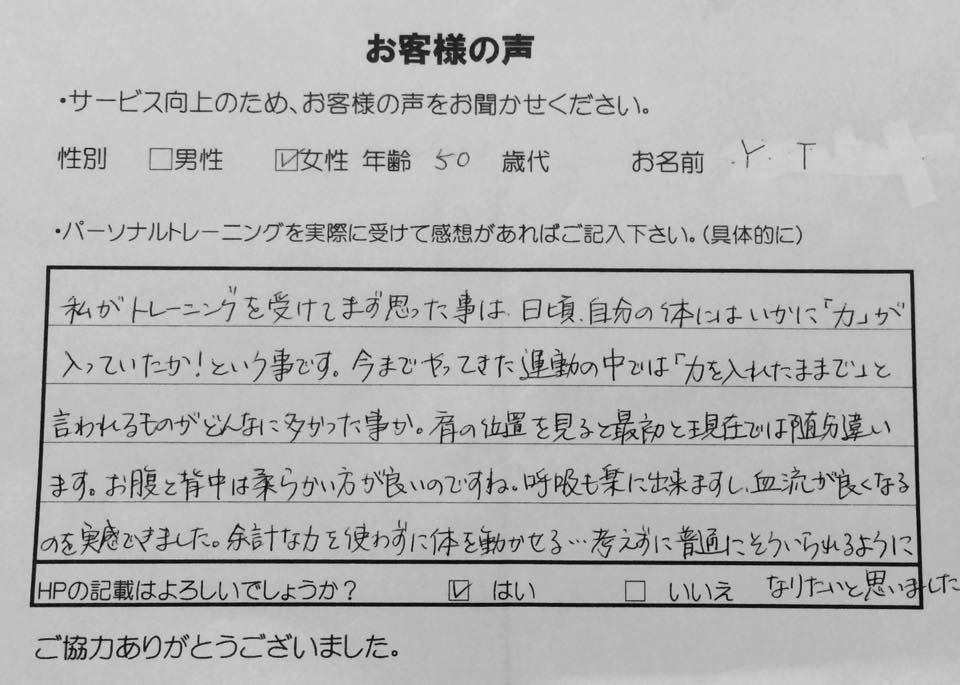 お客様の声
・サービス向上のため、お客様の声をお聞かせください。
性別 □男性 ☑女性 年齢 50 歳代 お名前 Y T
・パーソナルトレーニングを実際に受けて感想があればご記入下さい。(具体的に)
私がトレーニングを受けてまず思った事は、日頃、自分の体にはいかに「力」が
入っていたか!という事です。今までやってきた運動の中では「力を入れたままで」と
言われるものがどんなに多かった事か。肩の位置を見ると最初と現在では随分違い
ます。お腹と背中は柔らかい方が良いのですね。呼吸も楽に出来ますし、血流が良くなる
のを実感できました。余計な力を使わずに体を動かせる…考えずに普通にそういられるように
HPの記載はよろしいでしょうか? ☑ はい □ いいえ なりたいと思いました
ご協力ありがとうございました。